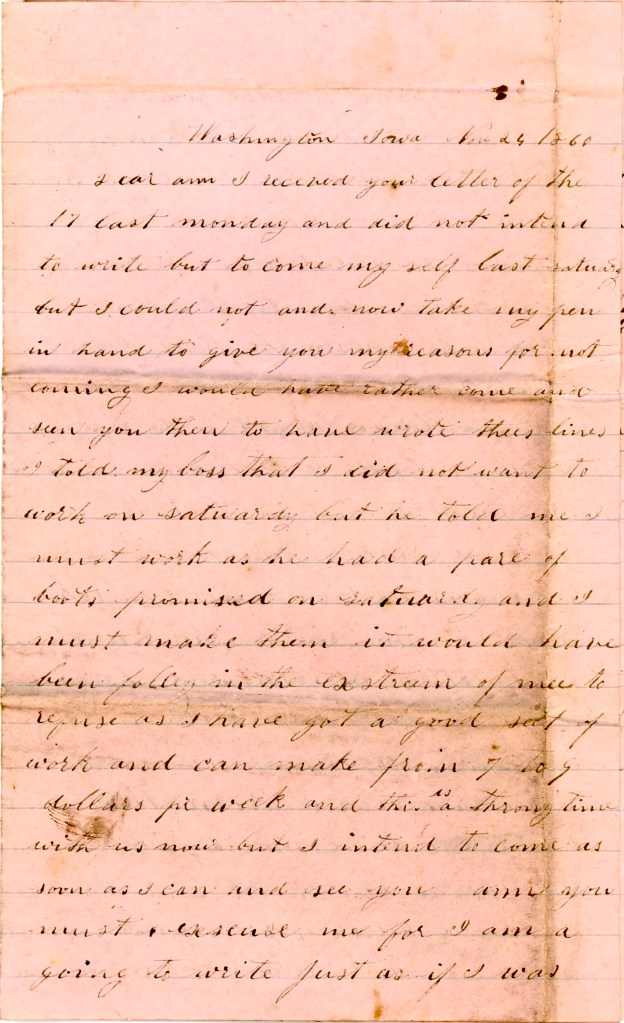 Washington Iowa Nov 24 1860
Dear ann I received your letter of the
17 last monday and did not intend
to write but to come my self last satuardy
but I could not and now take my pen
in hand to give you my reasons for not
coming I would have rather come and
seen you then to have wrote thees lines
I told my boss that I did not want to
work on satuardy but he told me I
must work as he had a pare of
boots promised on satuardy and I
must make them it would have
been folley in the exstreem of mee to
refuse as I have got a good seat of
work and can make from 7 to 9
dollars pr week and this is a throng time
with us now but I intend to come as
soon as I can and see you ann you
must exscuse me for I am a
going to write just as if I was